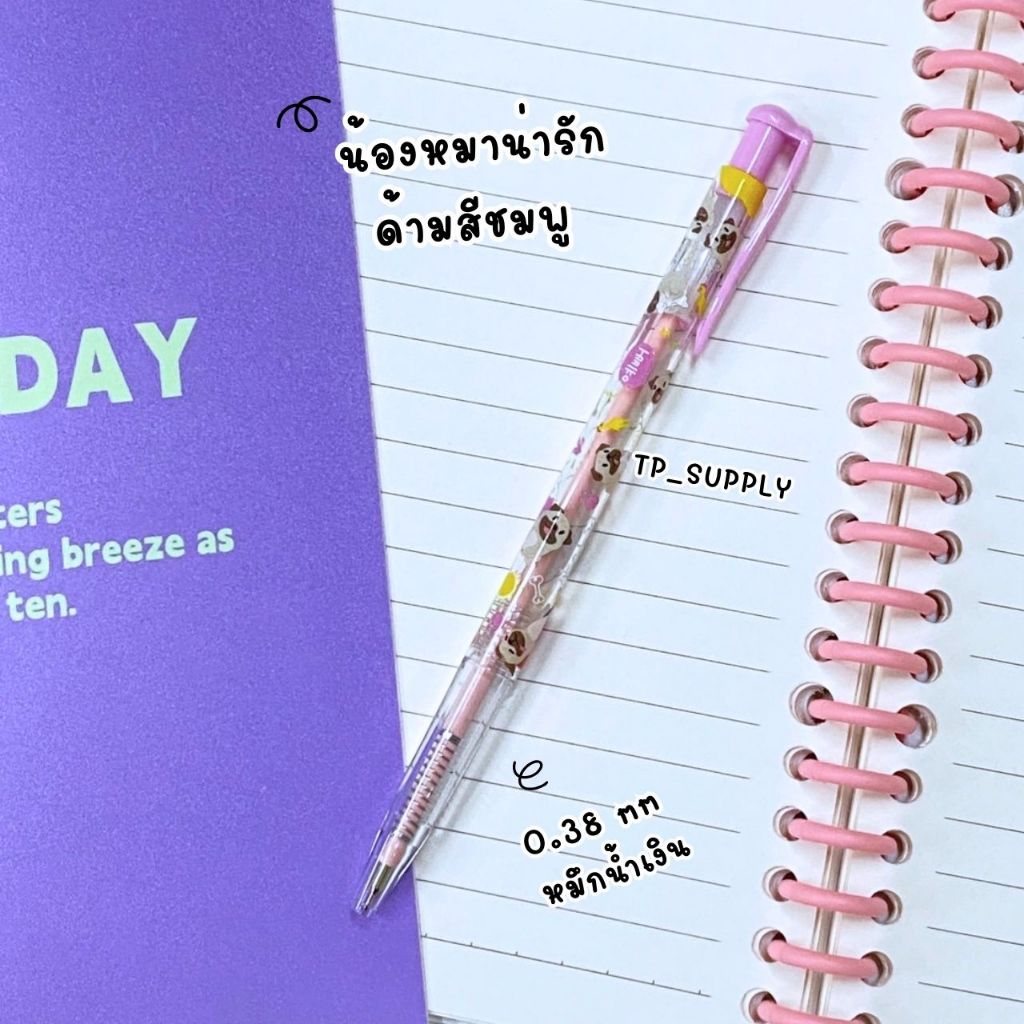 น้องหมาน่ารัก
ด้ามสีชมพู
DAY
ters
ing breeze as
ten.
TP_SUPPLY
0.38 mm
หมึกน้ำเงิน